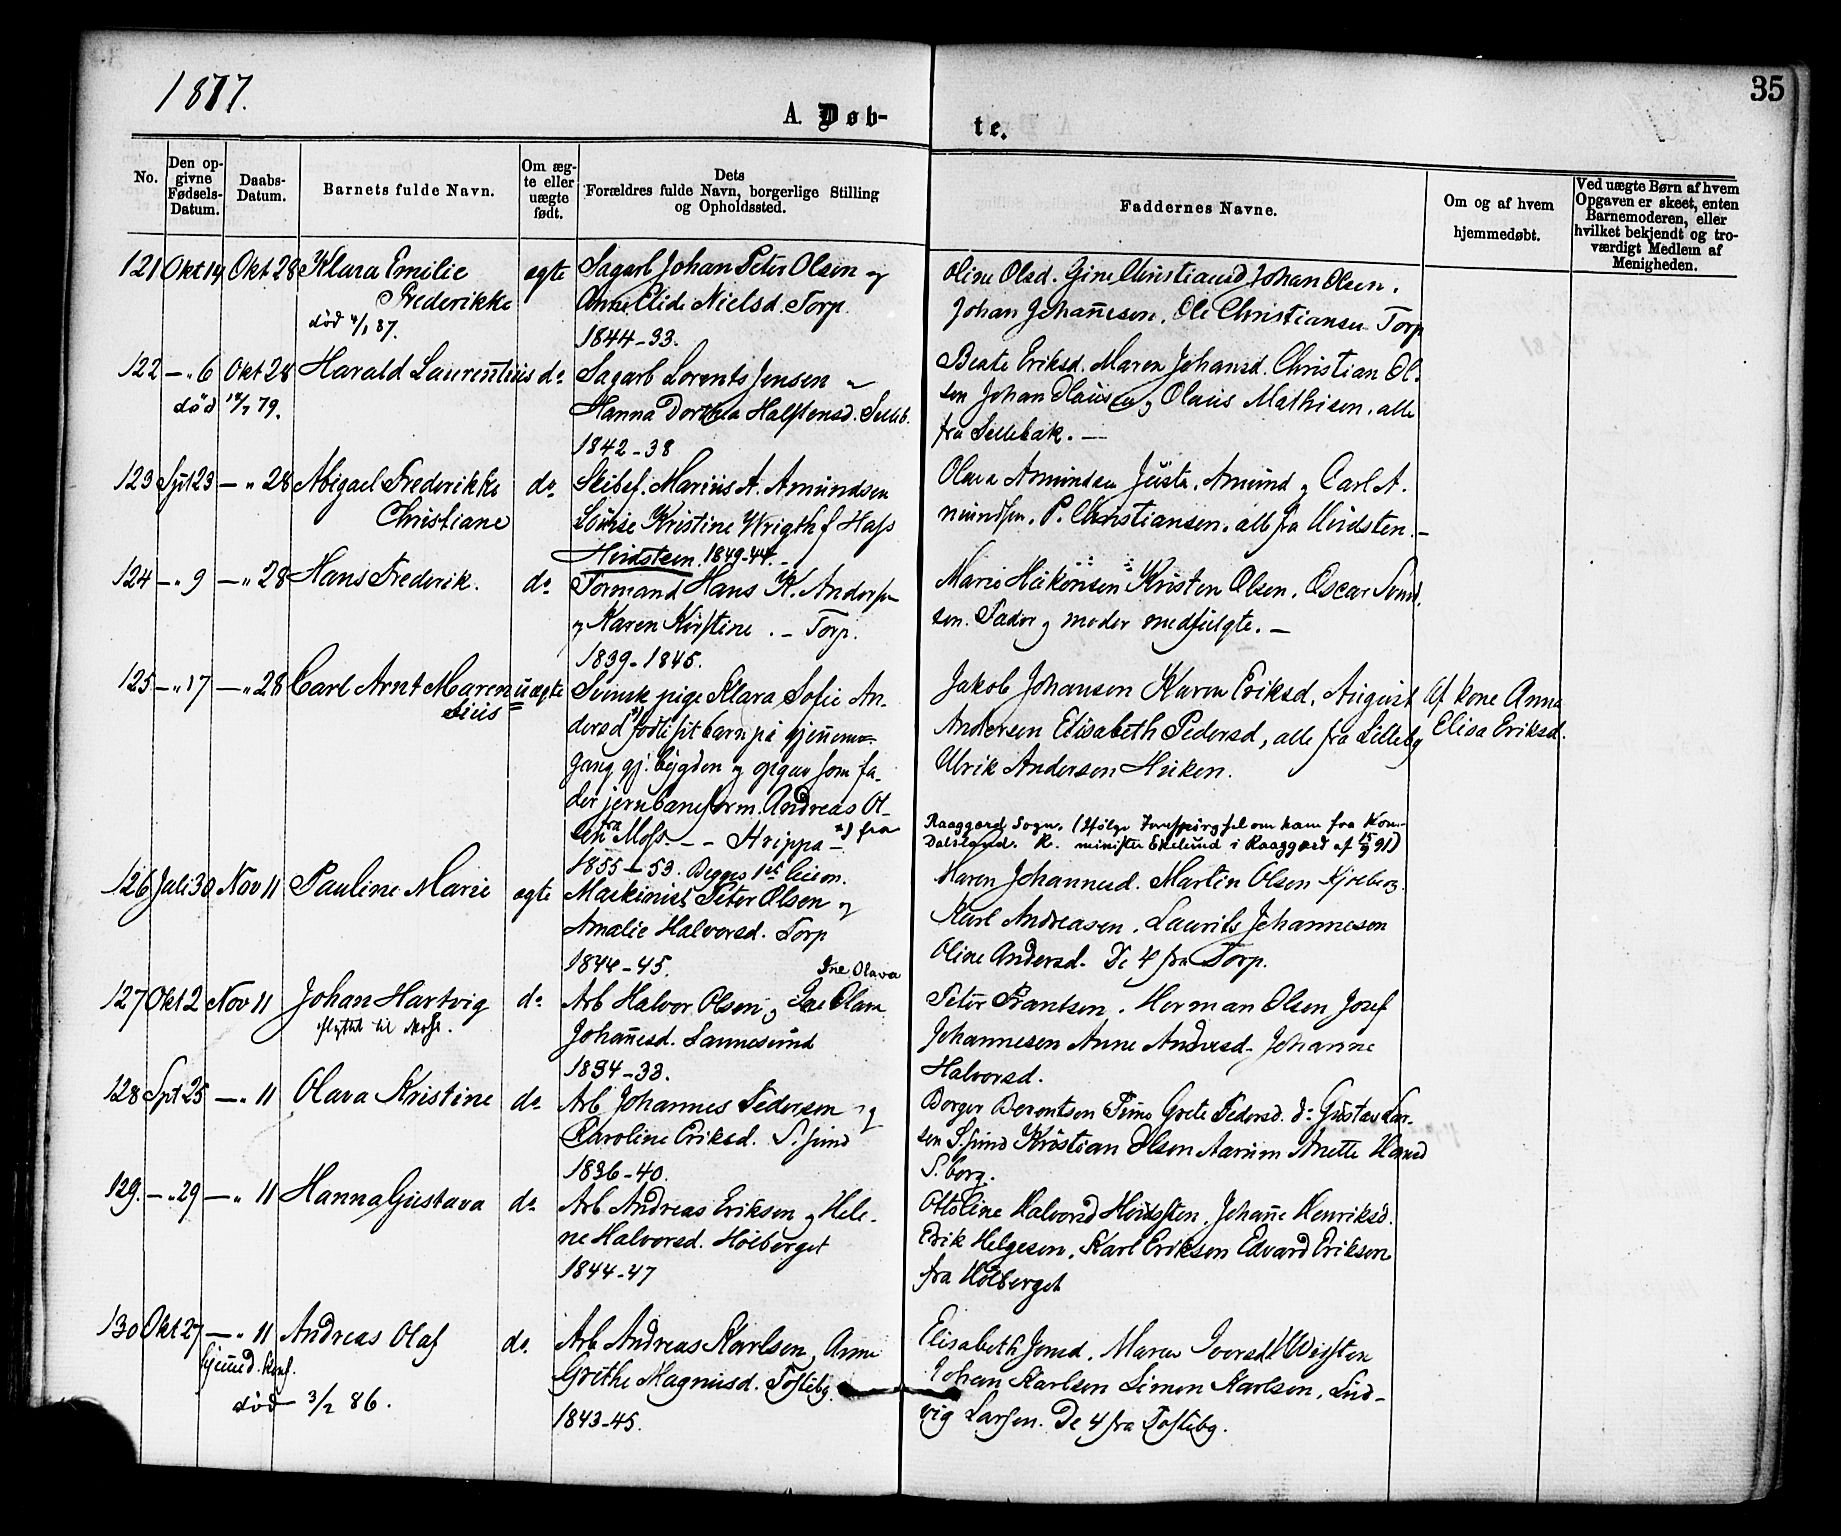 1877.
35
A. Døb-
te.
No.
Den op-
givne
Fødsels-
Datum.
Daabs-
Datum.
Barnets fulde Navn.
Om æg-
te eller
uægte
født.
Dets
Forældres fulde Navn, borgerlige Stilling
og Opholdssted.
Faddernes Navne.
Om og af hvem
hjemmedøbt.
Ved uægte Børn af hvem
Opgaven er skeet, enten
Barnemoderen, eller
hvilket bekjendt og tro-
værdigt Medlem af
Menigheden.
121 Okt 14 Okt 28 Klara Emilie ægte Sagarb Johan Peter Olsen og
Frederikke Nielsd. Torp.
død 87.
1844-33.
Oline Olsd. Gine Christiansd Johan Olsen.
Johan Johannesen. Ole Christiansen Torp
122 -"6 Okt 28 Harald Laurentius do Sagarb Lorents Jensen
død 79. Hanna Dorthea Halstensd. Selleb.
1842-38
Beate Eriksd. Maren Johansd. Christian Ol-
sen Johan og Olaus Mathisen. alle
fra Sellebak. —
123 Spt 23 -"28 Abigael Frederikke do Skibsf. Marius A. Amundsen
Christiane Louise Kristine Wrigth f Hass
Hvidsteen 1849-44.
Olava Amundsen Juste. Amund og Carl A-
mundsen. P. Christiansen. alle fra Hvidsten.
124 -"9 -"28 Hans Frederik. do Formand Hans K. Anders
og Karen Kirstine. - Torp.
1839-1845.
Marie Håkonsen Kristen Olsen. Oscar Svend-
sen. Fader og moder medfulgte. —
125 -"17 -"28 Carl Arnt Maren uægte Svensk pige Klara Sofie An-
sius dersd fødte sit barn på gjennem-
gang gj. bygden og opgav som fa-
der jernbaneform. Andreas Ol-
sen fra Moss - - Strippa - x) fra
1855-53. Begges 1ste leierm.
Jakob Johansen Karen Eriksd. August
Andersen Elisabeth Pedersd, alle fra Sellebg
Ulrik Andersen Huken.
Af kone Anna
Elisa Eriksd.
Raaggærd Sogn. (Ifølge om ham fra Kom-
Dalsland. K. minister Ekelund i Raaggærd af 15/9 91)
126 Juli 30 Nov 11 Pauline Marie ægte Maskinist Peter Olsen og
Amalie Halvorsd. Torp
1844-45.
Maren Johannesd. Martin Olsen Kjølberg.
Karl Andreasen. Laurits Johannesen
Oline Andersd. De 4 fra Torp.
Ine Olava
127 Okt 2 Nov 11 Johan Hartvig do Arb Halvor Olsen og Ine Olava
flyttet til Moss. Johannesd. Sannesund
1834-33.
Peter Frantsen. Herman Olsen Josef
Johannesen Anne Andersd. Johanne
Halvorsd.
128 Spt 25 -"11 Olava Kristine do Arb Johannes Pedersen og
Karoline Eriksd. S.sund
1836-40.
Borger Berentsen Tune Grete Pedersd. do Gustav Lar-
sen S.sund Kristian Olsen Aarum Anette Hansd
S.borg.
129. -"29 -"11 Hanna Gustava do Arb Andreas Eriksen og Hele-
ne Halvorsd. Holberget
1844-47
Ottoline Halvorsd Hvidsten. Johanne Henriksd.
Erik Helgesen. Karl Eriksen Edvard Eriksen
fra Holberget
130 Okt 27 -"11 Andreas Olaf do. Arb Andreas Karlsen, Anne
hjemmed. Grethe Magnusd. Tofteby.
død 3/2 86.
1843-45.
Elisabeth Jonsd. Maren Iversd
Johan Karlsen Simon Karlsen. Lud-
vig Larsen. De 4 fra Toftebg.